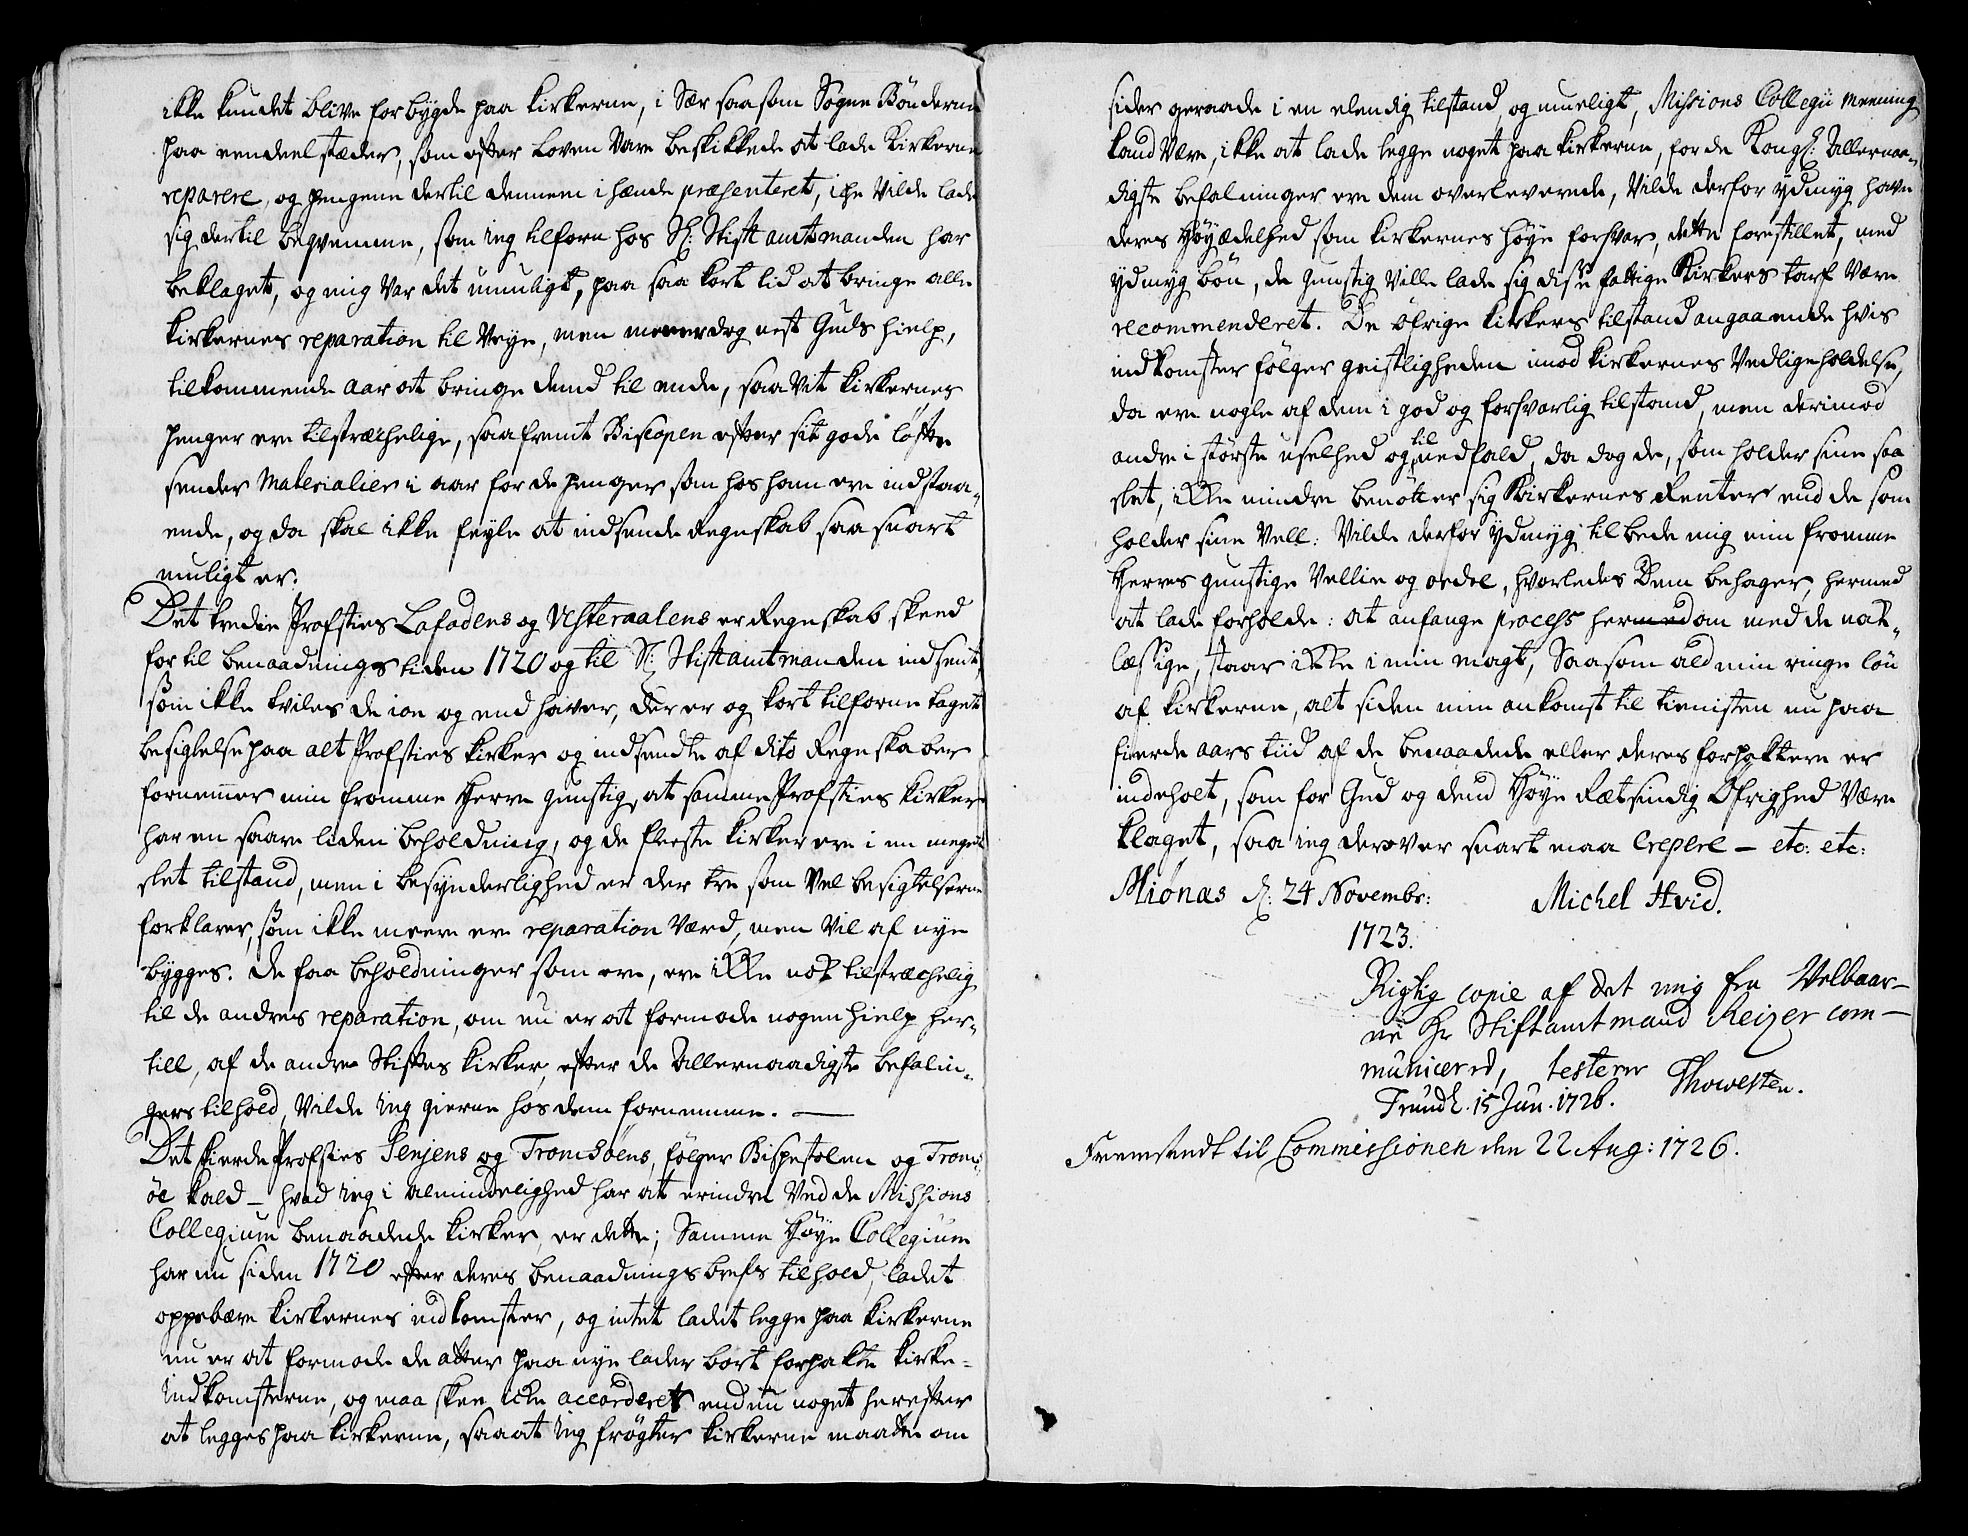 ikke kundet blive forbÿgde paa kirkerne, i Sær saasom Sogne Bønderne
paa eendeel stæder, som efter Loven Vare beskikkede at lade Kirkerne
reparere, og pengene dertil dennem i hænde præsenteret, iche Vilde lade
sig dertil beqvemme, som ieg tilforn hos H: Stiftamtmanden har
beklaget, og mig Var det umuligt, paa saa kort tid at bringe alle
kirkernes reparation til Veye, men meener dog nest Guds hielp,
tilkommende aar at bringe dend til ende, saa Vit kirkernes
penger ere tilstræchelige, saafremt Biscopen efter sit gode løfte
sender Materialier i aar for de penger som hos ham ere indstaa-
ende, og da skal ikke feyle at indsende Regnskab saa snart
muligt er.
Det tredie Profsties Lofodens og Vesteraalens er Regnskab skeed
for til benaadnings tiden 1720 og til H: Stiftamtmanden indsent,
som ikke tviles de jo og end haver, der er og kort tilforne taget
besigtelse paa alt Profsties kirker og indsendte af dito Regnskaber
fornemmer min fromme Herre gunstig, at samme Profsties kirker
har en saare liden beholdning, og de fleeste kirker ere i en meget
slet tilstand, men i besynderlighed er der tre som Vel besigtelserne
forklarer, som ikke meere ere reparation Værd, men Vil af nye
bygges. De faa beholdninger som ere, ere ikke nok tilstræchelig
til de andres reparation, om nu er at formode nogen hielp her-
till, af de andre Stiftes kirker, efter de Allernaadigste befalin-
gers tilhold, Vilde ieg gierne hos dem fornemme. —
Det fierde Profsties Senjens og Tromsøens, følger Bispestolen og Troms-
øe kald – hvad ieg i almindelighed har at erindre Ved de Missions
Collegium benaadede kirker, er dette; Samme Høye Collegium
har nu siden 1720 efter deres benaadningsbrefs tilhold, ladet
oppebære kirkernes indkomster, og intet ladet legge paa kirkerne
nu er at formode de atter paa nye lader bort forpakte kirke-
indkomsterne, og maa skee iche accorderet endnu noget herefter
at legges paa kirkerne, saa at ieg frøgter kirkerne maatte om
sider geraade i en elendig tilstand, og mueligt, Missions Collegii meening
kand Være, ikke at lade legge noget paa kirkerne, for de Kongl: Allernaa-
digste befalninger ere dem overleverede, Vilde derfor ydmyg have
deres Høyædelhed som kirkernes høye forsvar, dette forestillet, med
ydmyg bøn, de gunstig Ville lade sig disse fattige Kirkers tarf Være
recommenderet. De øfrige kirkers tilstand angaaende hvis
indkomster følger geistligheden imod kirkernes Vedligeholdelse,
da ere nogle af dem i god og forsvarlig tilstand, men derimod
andre i største uselhed og til nedfald, da dog de, som holder sine saa
slet, ikke mindre benøtter sig Kirkernes Renter end de som
holder sine Vell: Vilde derfor ydmyg tilbede mig min fromme
Herres gunstige Vellie og ordre, hvorledes Dem behager, hermed
at lade forholde: at anfange process hermed om med de nok-
læssige, staar ikke i min magt, Saasom ald min ringe løn
af kirkerne, alt siden min ankomst til tienisten nu paa
fierde aars tiid af de benaadede eller deres forpaktere er
indeholt, som for Gud og dend Høye Rætsindig Øfrighed Være
klaget, saa ieg derover snart maa crepere – etc: etc:
Miönæs d: 24 Novembr:
Michel Hvid.
1723.
Rigtig copie af det mig fra Velbaar-
ne Hr Stiftamtmand Keizer com-
municered, testerer
Thowesten.
Trundh. 15 Jun. 1726.
Fremsendt til Commissionen den 22 Aug: 1726.